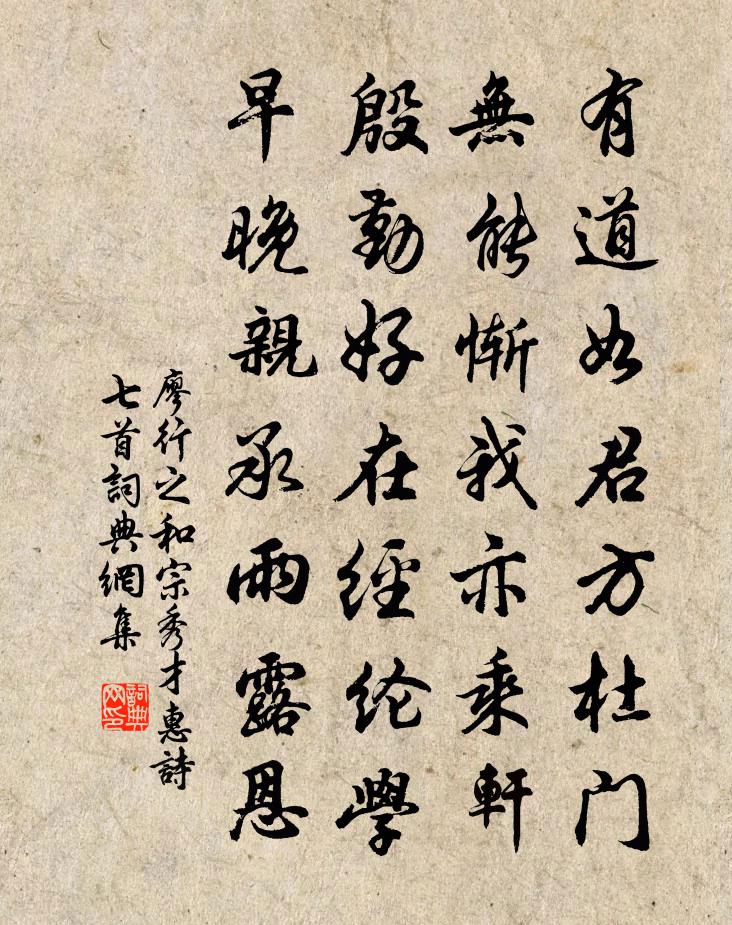 有道如君方杜门
無能惭我亦乘軒
殷勤好在經纶學
早晚親承雨露恩
廖行之和宗秀才惠詩
七首詞典網集
詞典网印